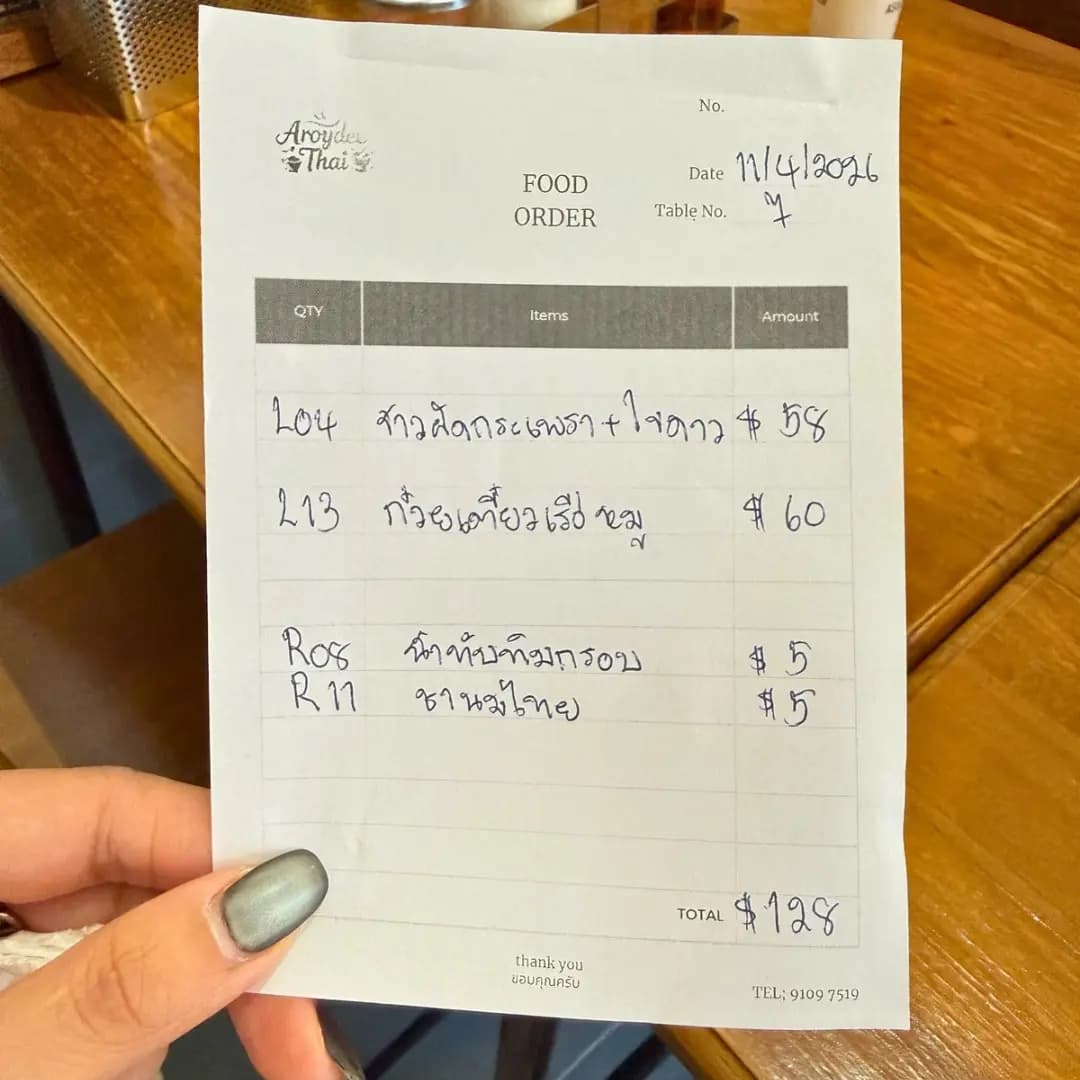 Aroydee
Thai
No.
Date 11/4/2026
Table No. 7
FOOD
ORDER
QTY Items Amount
L04 ข้าวผัดกระเพรา + ไข่ดาว $ 58
L13 ก๋วยเตี๋ยวเรือ หมู $ 60
R08 น้ำทับทิมกรอบ $ 5
R11 ชานมไทย $ 5
TOTAL $128
thank you
ขอบคุณครับ
TEL; 9109 7519